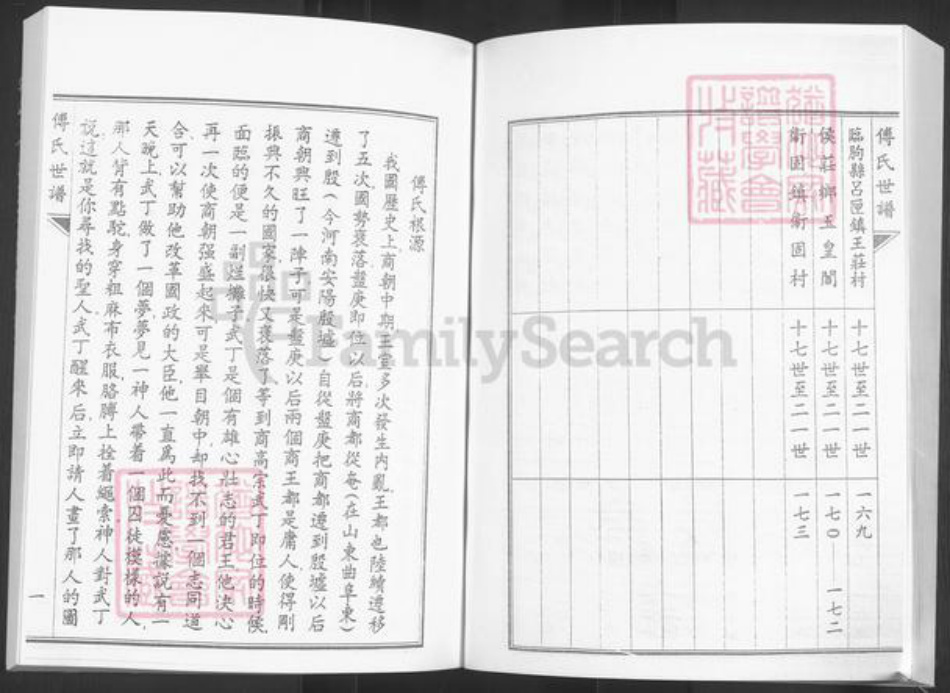 傅氏世譜
臨朐縣呂匣鎮王莊村 十七世至二一世 一六九
侯莊鄉玉皇閣 十七世至二一世 一七〇 一七二
衛固鎮衛固村 十七世至二一世 一七三
傅氏根源
我國歷史上商朝中期王室多次發生內亂王都也陸續遷移
了五次國勢衰落盤庚即位以后將商都從奄(在山東曲阜東)
遷到殷(今河南安陽殷墟)自從盤庚把商都遷到殷墟以后
商朝興旺了一陣子可是盤庚以后兩個商王都是庸人使得剛
振興不久的國家很快又衰落了等到商高宗武丁即位的時候
面臨的便是一副爛攤子武丁是個有雄心壯志的君王他决心
再一次使商朝强盛起來可是舉目朝中却找不到一個志同道
合可以幫助他改革國政的大臣他一直爲此而憂慮據説有一
天晚上武丁做了一個夢夢見一神人帶着一個囚徒模樣的人
那人背有點駝身穿粗麻布衣服胳膊上拴着繩索神人對武丁
説這就是你尋找的聖人武丁醒來后立即請人畫了那人的圖
傅氏世譜
一
FamilySearch